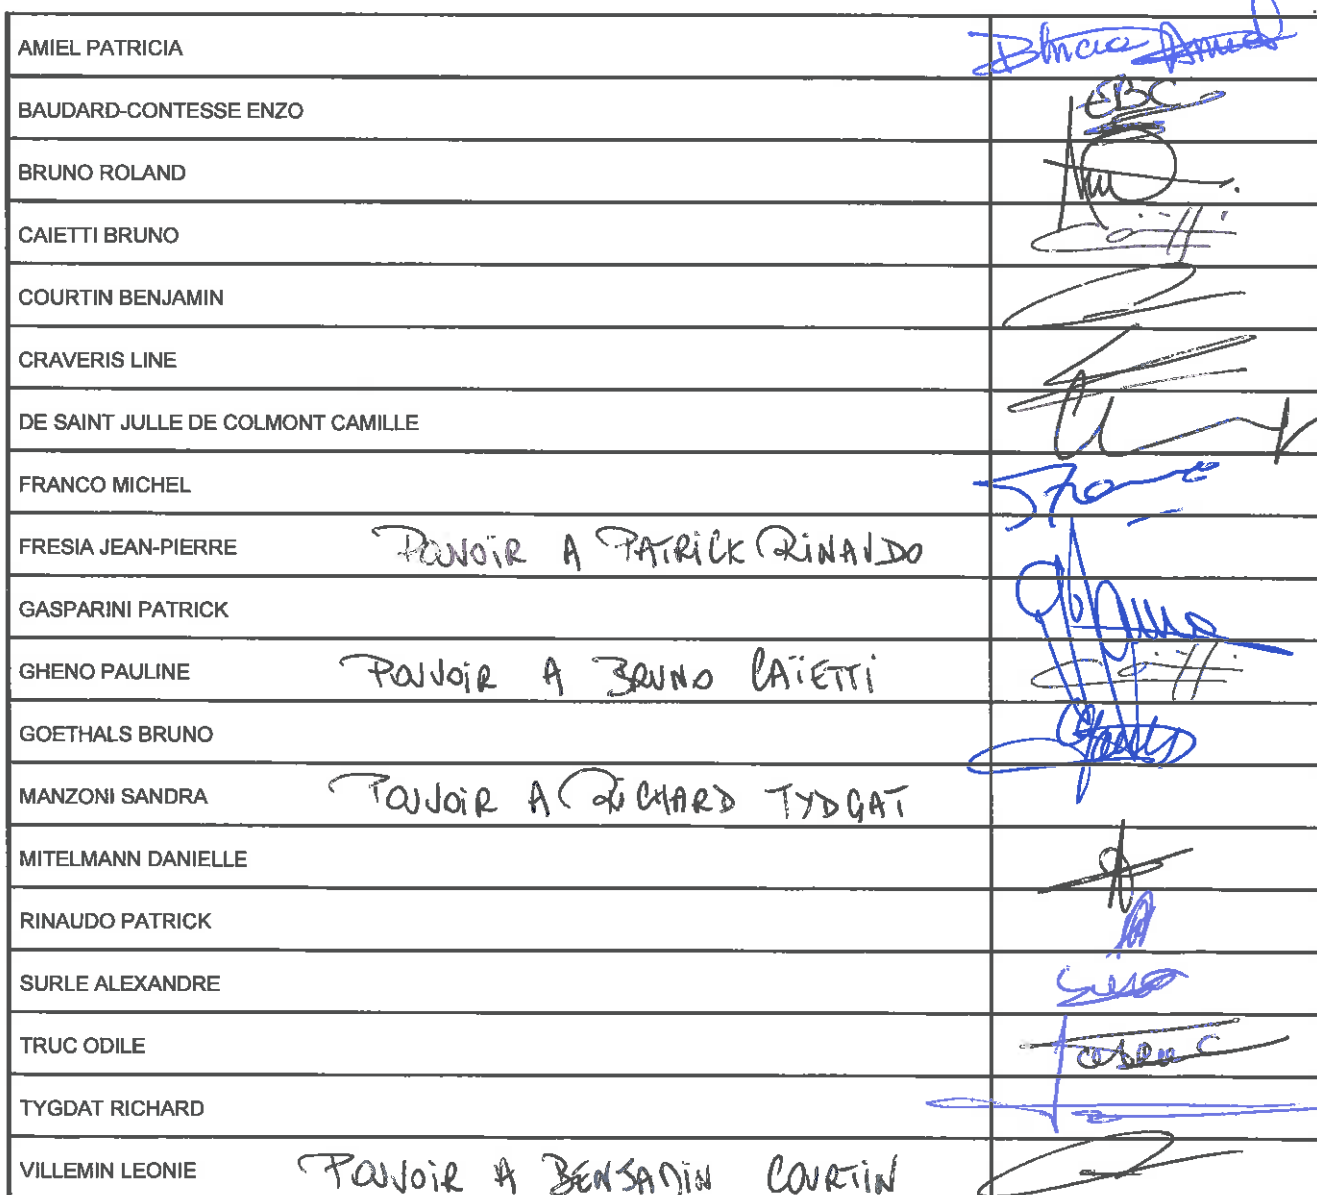 AMIEL PATRICIA
BAUDARD-CONTESSE ENZO EBC
BRUNO ROLAND
CAIETTI BRUNO
COURTIN BENJAMIN
CRAVERIS LINE
DE SAINT JULLE DE COLMONT CAMILLE
FRANCO MICHEL
FRESIA JEAN-PIERRE POUVOIR A PATRICK RINAUDO
GASPARINI PATRICK
GHENO PAULINE POUVOIR A BRUNO CAÏETTI
GOETHALS BRUNO
MANZONI SANDRA POUVOIR A RICHARD TYDGAT
MITELMANN DANIELLE
RINAUDO PATRICK
SURLE ALEXANDRE
TRUC ODILE
TYGDAT RICHARD
VILLEMIN LEONIE POUVOIR A BENJAMIN COURTIN